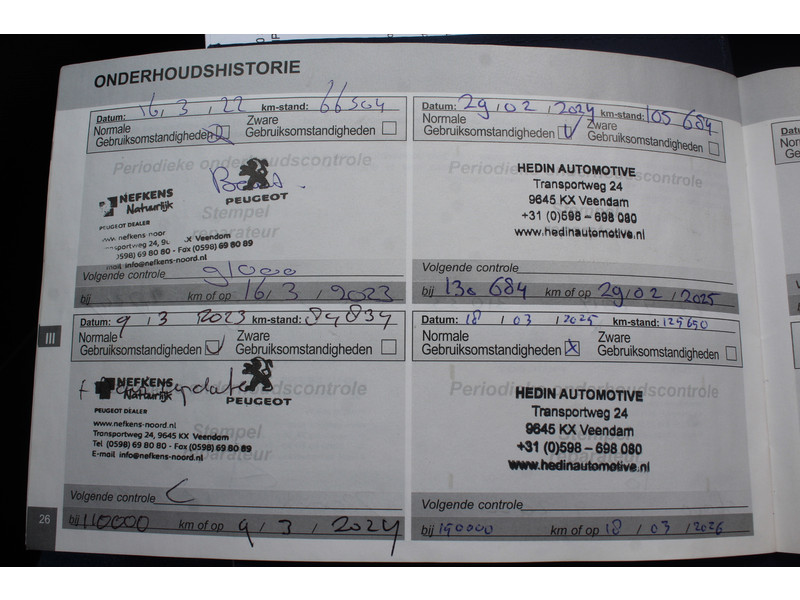 ONDERHOUDSHISTORIE
Datum: 16, 3, 22 km-stand: 66504
Normale Gebruiksomstandigheden
Zware Gebruiksomstandigheden
Periodieke onderhoudscontrole
NEFKENS
Natuurlijk
PEUGEOT DEALER
PEUGEOT
Stempel
reparateur
www.nefkens-noor
nsportweg 24, 96 .X Veendam
(0598) 69 80 80 - Fax (0598) 69 80 89
mail info@nefkens-noord.nl
Volgende controle 91000
bij km of op 16, 3, 2023
Datum: 29, 02, 2024 km-stand: 105 684
Normale Gebruiksomstandigheden
Zware Gebruiksomstandigheden
HEDIN AUTOMOTIVE
Transportweg 24
9645 KX Veendam
+31 (0)598 - 698 080
www.hedinautomotive.nl
Volgende controle
bij 130 684 km of op 29, 02, 2025
III
Datum: 9, 3 2023 km-stand: 84834
Normale Gebruiksomstandigheden
Zware Gebruiksomstandigheden
NEFKENS
Natuurlijk
PEUGEOT DEALER
PEUGEOT
www.nefkens-noord.nl
Transportweg 24, 9645 KX Veendam
Tel (0598) 69 80 80 - Fax (0598) 69 80 89
E-mail info@nefkens-noord.nl
Stempel
reparateur
Volgende controle
bij 110000 km of op 9, 3, 2024
Datum: 18, 03, 2025 km-stand: 125650
Normale Gebruiksomstandigheden
Zware Gebruiksomstandigheden
Periodieke onderhoudscontrole
HEDIN AUTOMOTIVE
Transportweg 24
9645 KX Veendam
+31 (0)598 - 698 080
www.hedinautomotive.nl
Volgende controle
bij 150000 km of op 18, 03, 2026
26